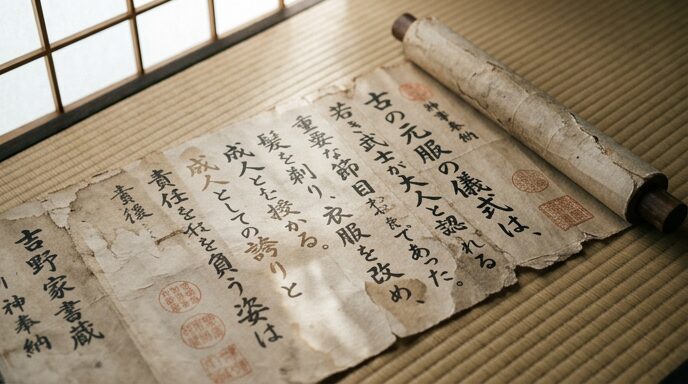 神事奉納
古の元服の儀式は、
若き武士が大人と認れる
重要な節目であった。
髪を剃り、衣服を改め、
成人とむ授かる。
成人としての誇りと
責任を を負う姿は
責後
吉野家書蔵
り神奉納